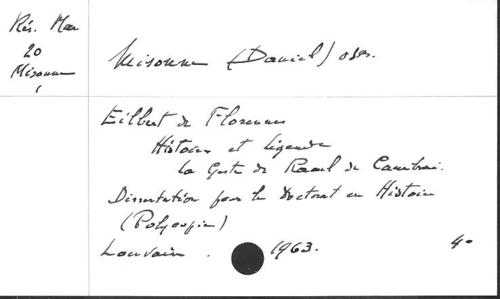 Rés. Mar
20
Misonne
1
Misonne (Daniel) osb.
Eilbert de Florennes
Histoire et légende
La Geste de Raoul de Cambrai.
Dissertation pour le Doctorat en Histoire
(Polycopié)
Louvain . 1963. 4°